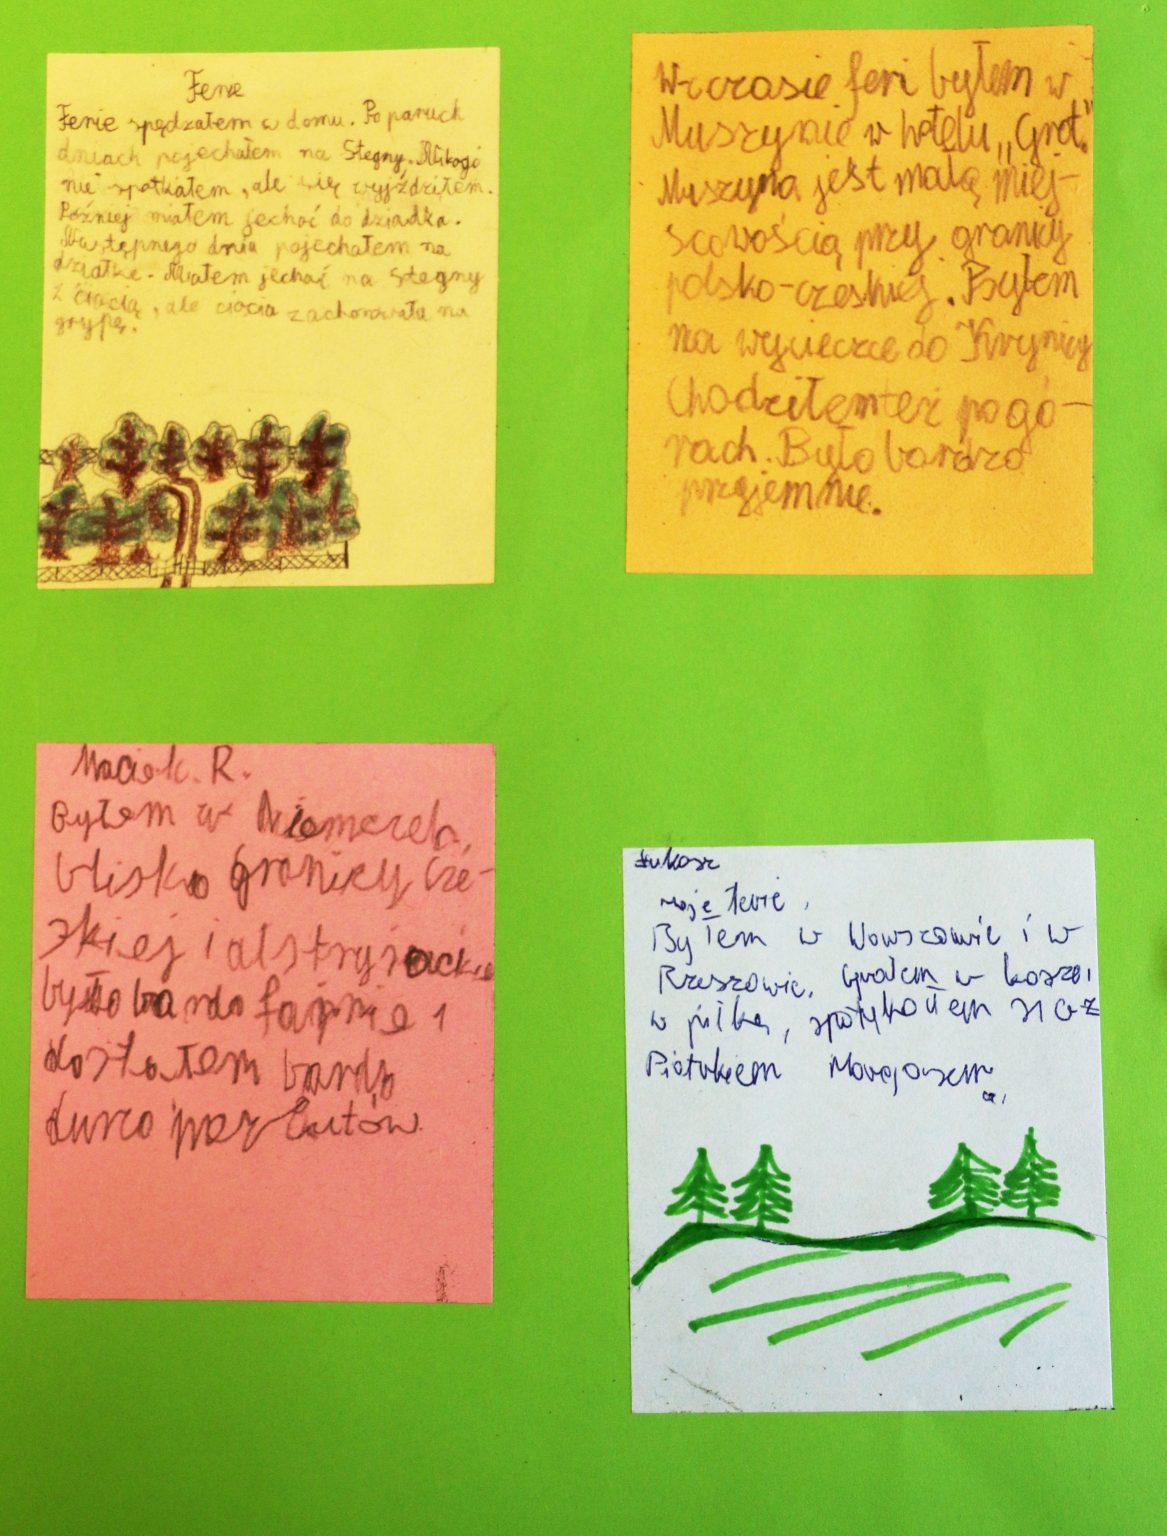 Ferie
Ferie spędzałem w domu. Po paruch
dniach pojechałem na Stegny. Nikogo
nie spotkałem, ale się wyjździłem.
Później miałem jechać do dziadka.
Następnego dnia pojechałem na
działkę. Miałem jechać na Stegny
z ciocią, ale ciocia zachorowała na
grypę.
W czasie feri byłem w
Muszynie w hotelu „Grot."
Muszyna jest małą miej-
scowością przy granicy
polsko-czeskiej. Byłem
na wycieczce do Krynicy
Chodziłem też po gó-
rach. Było bardzo
przyjemnie.
Maciek. R.
Byłem w Niemczech,
blisko granicy cze-
skiej i
było bardo fajnie i
dostałem bardo
durzo
Łukasz
moje ferie.
Byłem w Warszawie i w
Rzeszowie. Grałem w kosza i
w piłkę, spotykałem się z
Piotrkiem